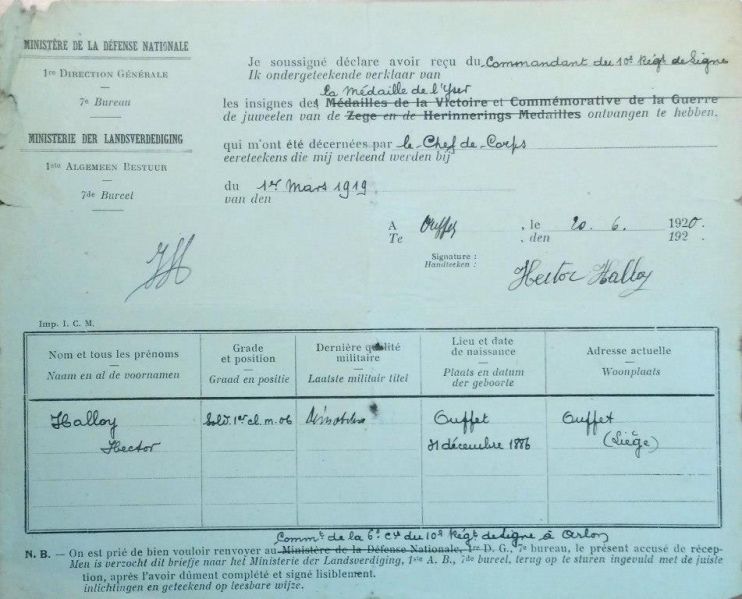 MINISTÈRE DE LA DÉFENSE NATIONALE
1re DIRECTION GÉNÉRALE
7e Bureau
MINISTERIE DER LANDSVERDEDIGING
1ste ALGEMEEN BESTUUR
7de Bureel
Je soussigné déclare avoir reçu du Commandant du 10e Régt de Ligne
Ik ondergeteekende verklaar van
La Médaille de l'Yser
les insignes des Médailles de la Victoire et Commémorative de la Guerre
de juweelen van de Zege en de Herinnerings Medailles ontvangen te hebben,
qui m'ont été décernées par le Chef de Corps
eereteekens die mij verleend werden bij
du 1er Mars 1919
van den
A Ouffet, le 20. 6. 1920.
Te , den 192 .
Signature :
Handteeken :
Hector Halloy
JH
Imp. I. C. M.
Nom et tous les prénoms
Naam en al de voornamen
Grade et position
Graad en positie
Dernière qualité militaire
Laatste militair titel
Lieu et date de naissance
Plaats en datum der geboorte
Adresse actuelle
Woonplaats
Halloy Sold. 1er cl. m. 06 Ouffet Ouffet
Hector 31 décembre 1886 (Liège)
Commt de la 6e Cie du 10e Régt de Ligne à Arlon
N. B. — On est prié de bien vouloir renvoyer au Ministère de la Défense Nationale, 1re D. G., 7e bureau, le présent accusé de récep-
Men is verzocht dit briefje naar het Ministerie der Landsverdiging, 1ste A. B., 7de bureel, terug op te sturen ingevuld met de juiste
tion, après l'avoir dûment complété et signé lisiblement.
inlichtingen en geteekend op leesbare wijze.